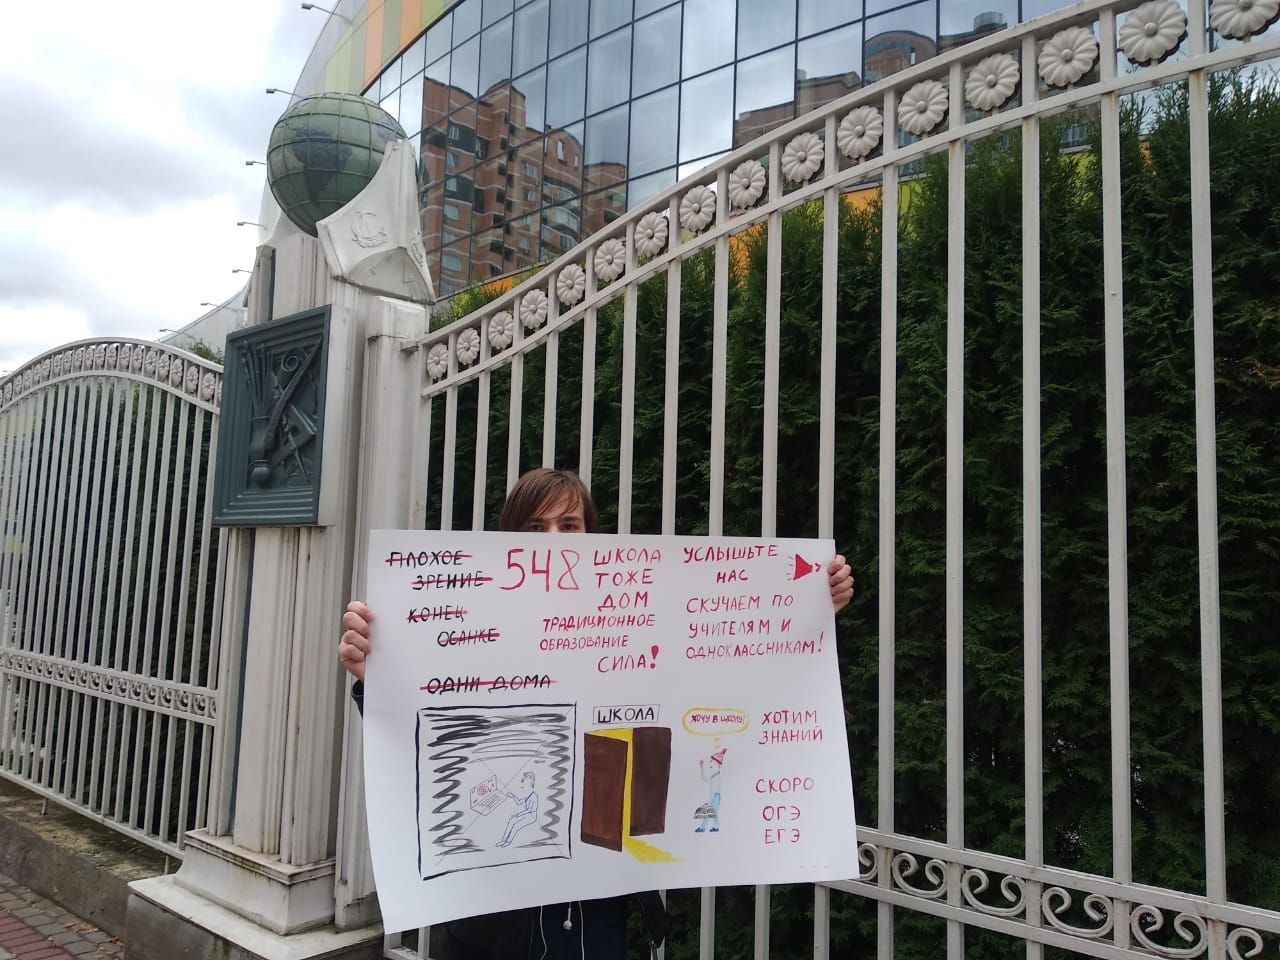 ПЛОХОЕ
ЗРЕНИЕ
КОНЕЦ
ОСАНКЕ
ОДНИ ДОМА
548
ШКОЛА
ТОЖЕ
ДОМ
ТРАДИЦИОННОЕ
ОБРАЗОВАНИЕ
СИЛА!
УСЛЫШЬТЕ
НАС
СКУЧАЕМ ПО
УЧИТЕЛЯМ И
ОДНОКЛАССНИКАМ!
ШКОЛА
ХОЧУ В ШКОЛУ!
ХОТИМ
ЗНАНИЙ
СКОРО
ОГЭ
ЕГЭ